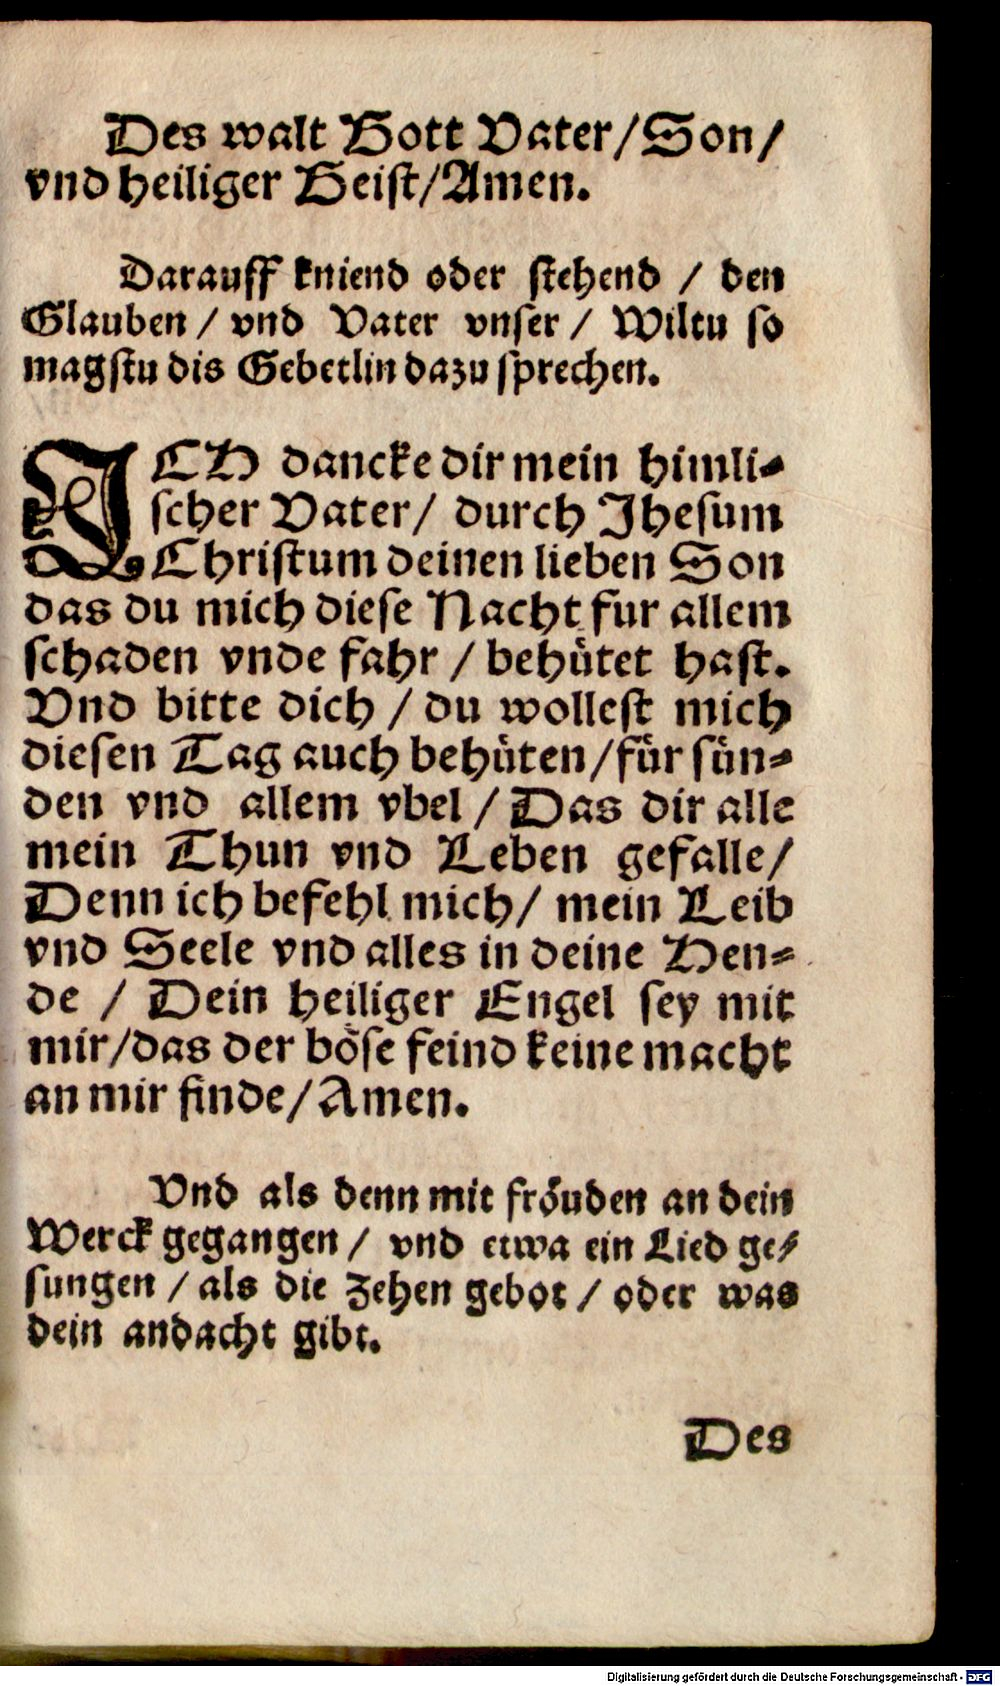 Des walt Gott Vater/Son/
vnd heiliger Geist/Amen.
Darauff kniend oder stehend / den
Glauben / vnd Vater vnser / Wiltu so
magstu dis Gebetlin dazu sprechen.
ICH dancke dir mein himli-
scher Vater/ durch Jhesum
Christum deinen lieben Son
das du mich diese Nacht fur allem
schaden vnde fahr / behütet hast.
Vnd bitte dich / du wollest mich
diesen Tag auch behüten/für sün-
den vnd allem vbel / Das dir alle
mein Thun vnd Leben gefalle/
Denn ich befehl mich/ mein Leib
vnd Seele vnd alles in deine Hen-
de / Dein heiliger Engel sey mit
mir/das der böse feind keine macht
an mir finde/Amen.
Vnd als denn mit fröuden an dein
Werck gegangen / vnd etwa ein Lied ge-
sungen / als die zehen gebot / oder was
dein andacht gibt.
Des
Digitalisierung gefördert durch die Deutsche Forschungsgemeinschaft - DFG